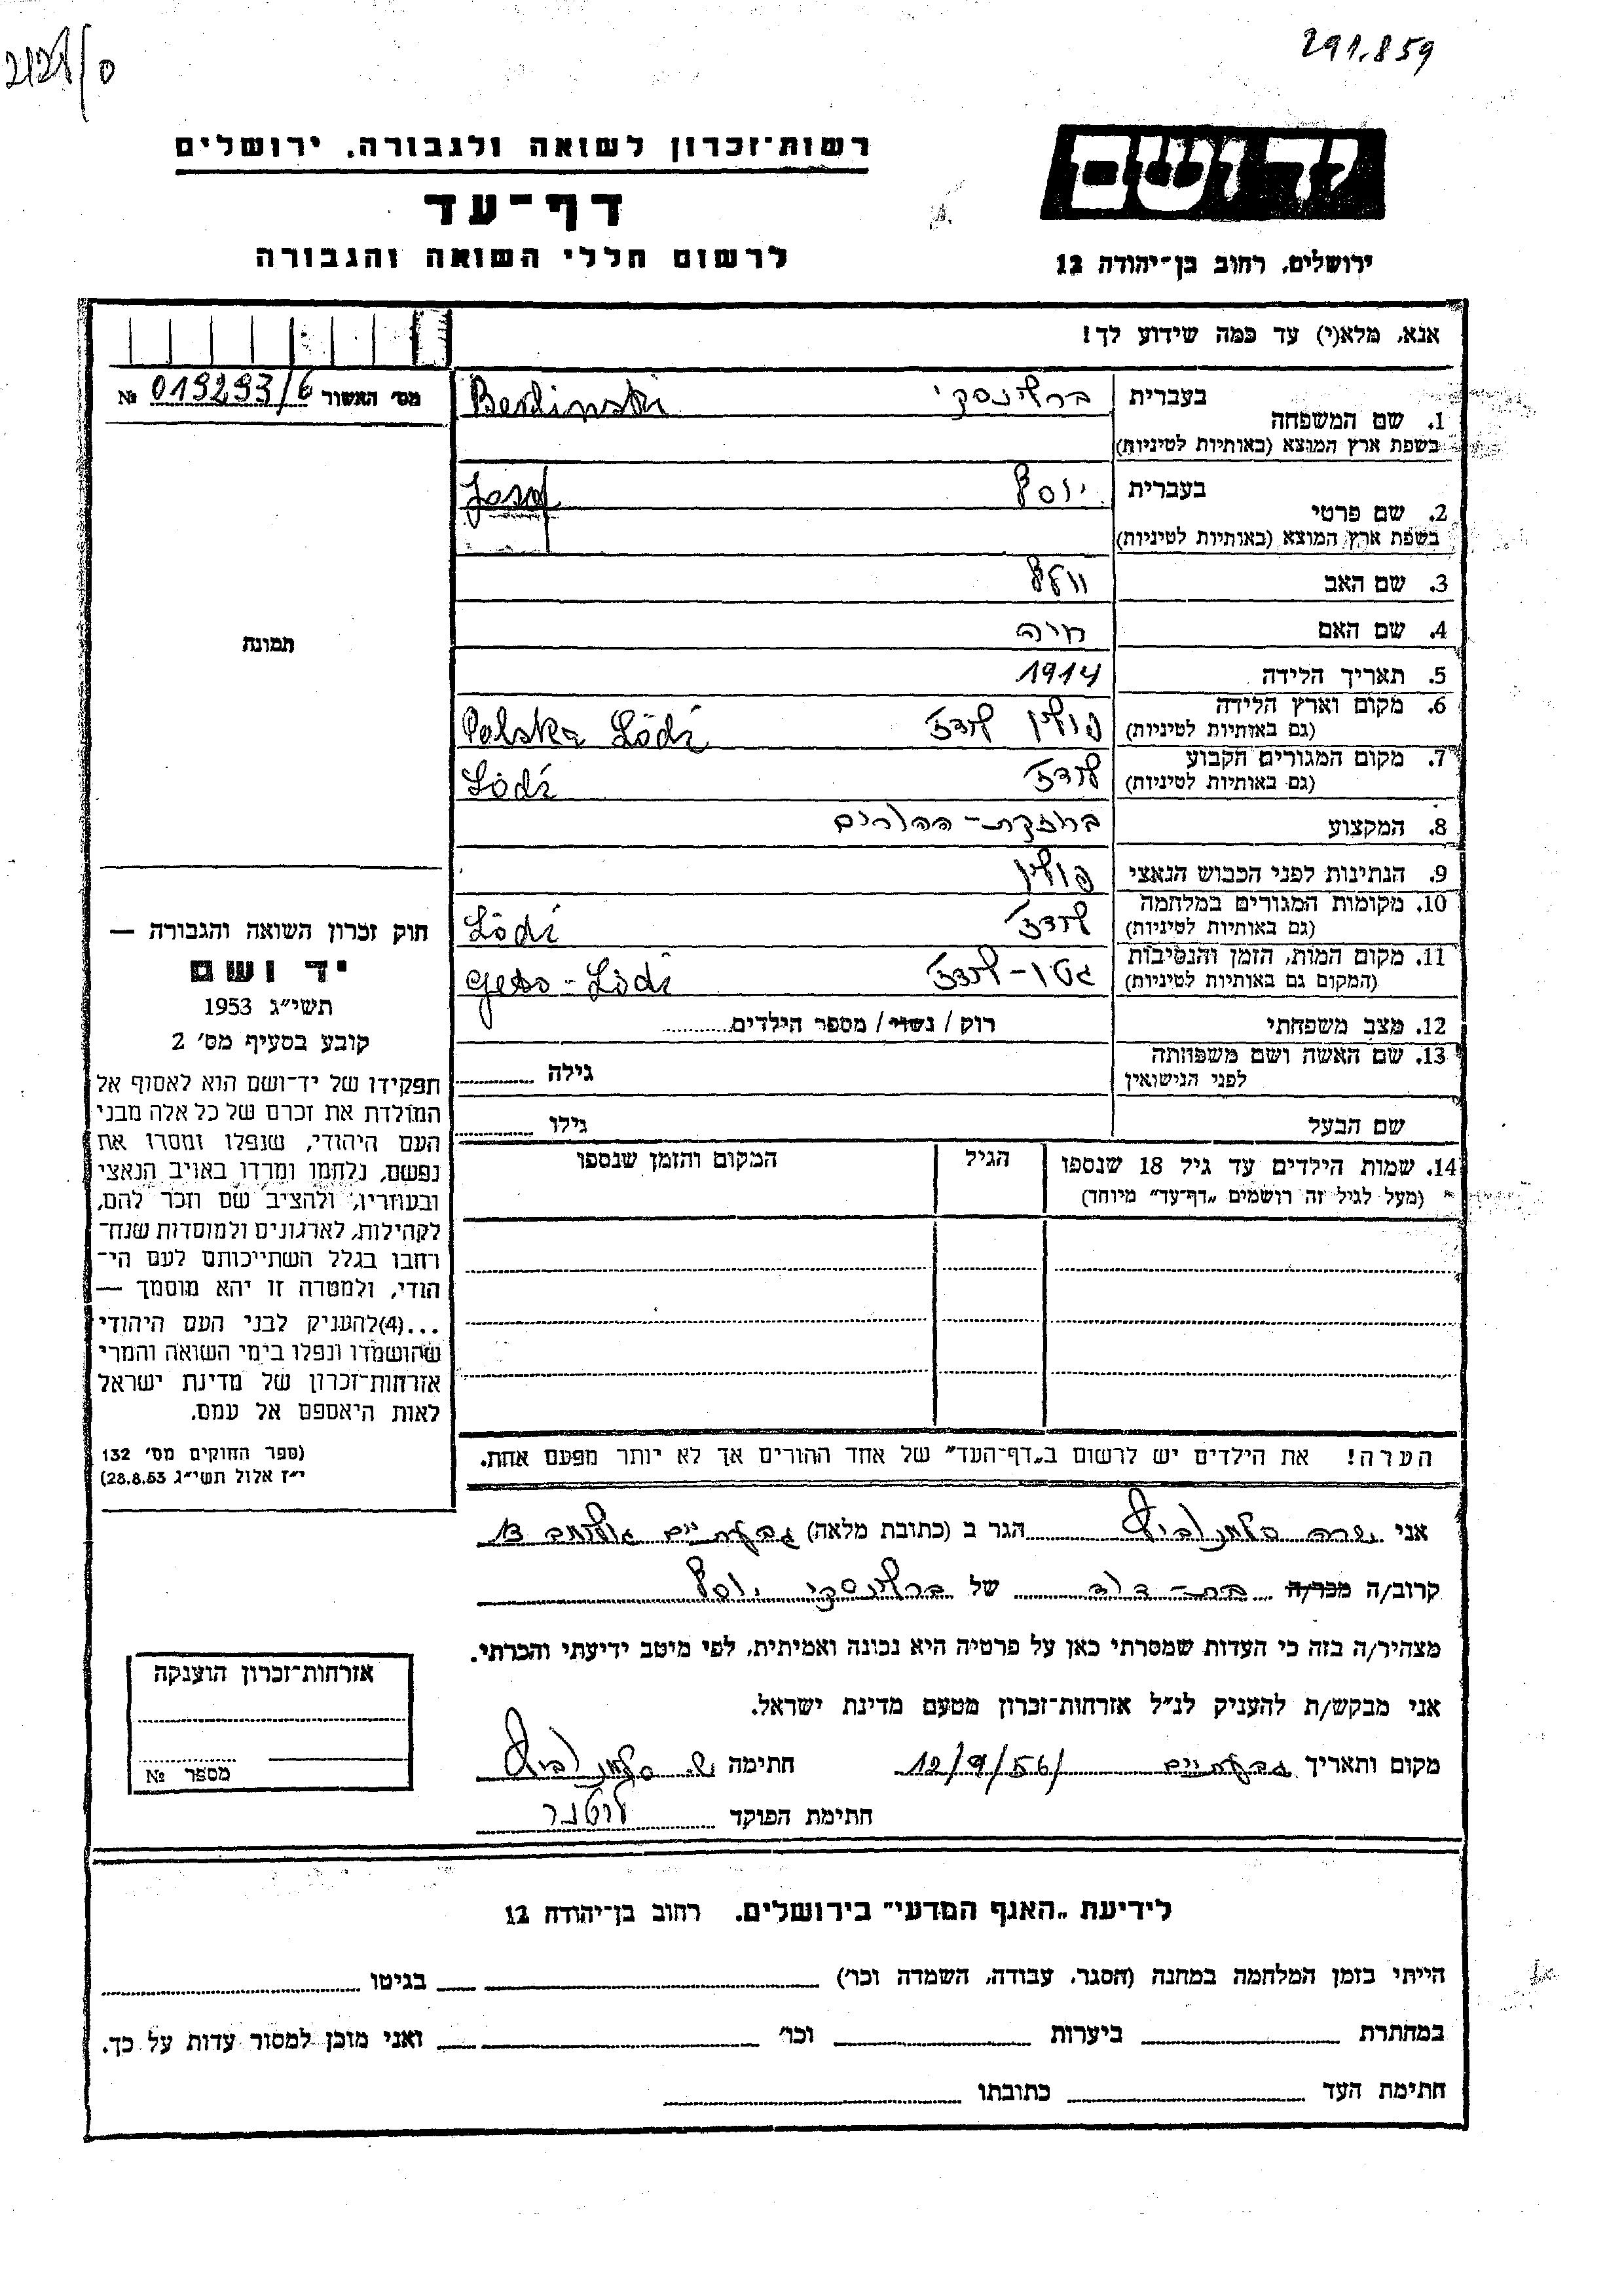 291.859
רשות־זכרון לשואה ולגבורה, ירושלים
דף־עד
לרשום חללי השואה והגבורה
יד ושם
ירושלים, רחוב בן־יהודה 12
אנא, מלא(י) עד כמה שידוע לך!
מס׳ האשור № 019293/6
1. שם המשפחה בעברית ברלינסקי
בשפת ארץ המוצא (באותיות לטיניות) Berlinski
2. שם פרטי בעברית יוסף
בשפת ארץ המוצא (באותיות לטיניות) Josef
3. שם האב וולף
4. שם האם חיה
5. תאריך הלידה 1914
6. מקום וארץ הלידה (גם באותיות לטיניות) פולין לודז' Polska Lódź
7. מקום המגורים הקבוע (גם באותיות לטיניות) לודז' Lódź
8. המקצוע בחזקת־ההורים
9. הנתינות לפני הכבוש הנאצי פולין
10. מקומות המגורים במלחמה (גם באותיות לטיניות) לודז' Lódź
11. מקום המות, הזמן והנסיבות (המקום גם באותיות לטיניות) גטו-לודז' Geto-Lódź
12. מצב משפחתי רוק / נשוי / מספר הילדים
13. שם האשה ושם משפחתה לפני הנישואין גילה
שם הבעל גילו
14. שמות הילדים עד גיל 18 שנספו (מעל לגיל זה רושמים „דף־עד״ מיוחד) הגיל המקום והזמן שנספו
הערה! את הילדים יש לרשום ב„דף־העד״ של אחד ההורים אך לא יותר מפעם אחת.
תמונה
חוק זכרון השואה והגבורה —
יד ושם
תשי״ג 1953
קובע בסעיף מס׳ 2
תפקידו של יד־ושם הוא לאסוף אל
המולדת את זכרם של כל אלה מבני
העם היהודי, שנפלו ומסרו את
נפשם, נלחמו ומרדו באויב הנאצי
ובעוזריו, ולהציב שם וזכר להם,
לקהילות, לארגונים ולמוסדות שנח־
רחבו בגלל השתייכותם לעם הי־
הודי, ולמטרה זו יהא מוסמך —
...(4)להעניק לבני העם היהודי
שהושמדו ונפלו בימי השואה והמרי
אזרחות־זכרון של מדינת ישראל
לאות היאספם אל עמם.
(ספר החוקים מס׳ 132
י״ז אלול תשי״ג 28.8.53)
אני שרה הגר ב (כתובת מלאה) גבעתיים 13
קרוב/ה מכר/ה בת־דוד של ברלינסקי יוסף
מצהיר/ה בזה כי העדות שמסרתי כאן על פרטיה היא נכונה ואמיתית, לפי מיטב ידיעתי והכרתי.
אני מבקש/ת להעניק לנ״ל אזרחות־זכרון מטעם מדינת ישראל.
מקום ותאריך גבעתיים 12/9/56 חתימה ש.
חתימת הפוקד
אזרחות־זכרון הוענקה
מספר №
לידיעת „האגף המדעי״ בירושלים, רחוב בן־יהודה 12
הייתי בזמן המלחמה במחנה (הסגר, עבודה, השמדה וכו׳) בגיטו
במחתרת ביערות וכו׳ ואני מוכן למסור עדות על כך.
חתימת העד כתובתו